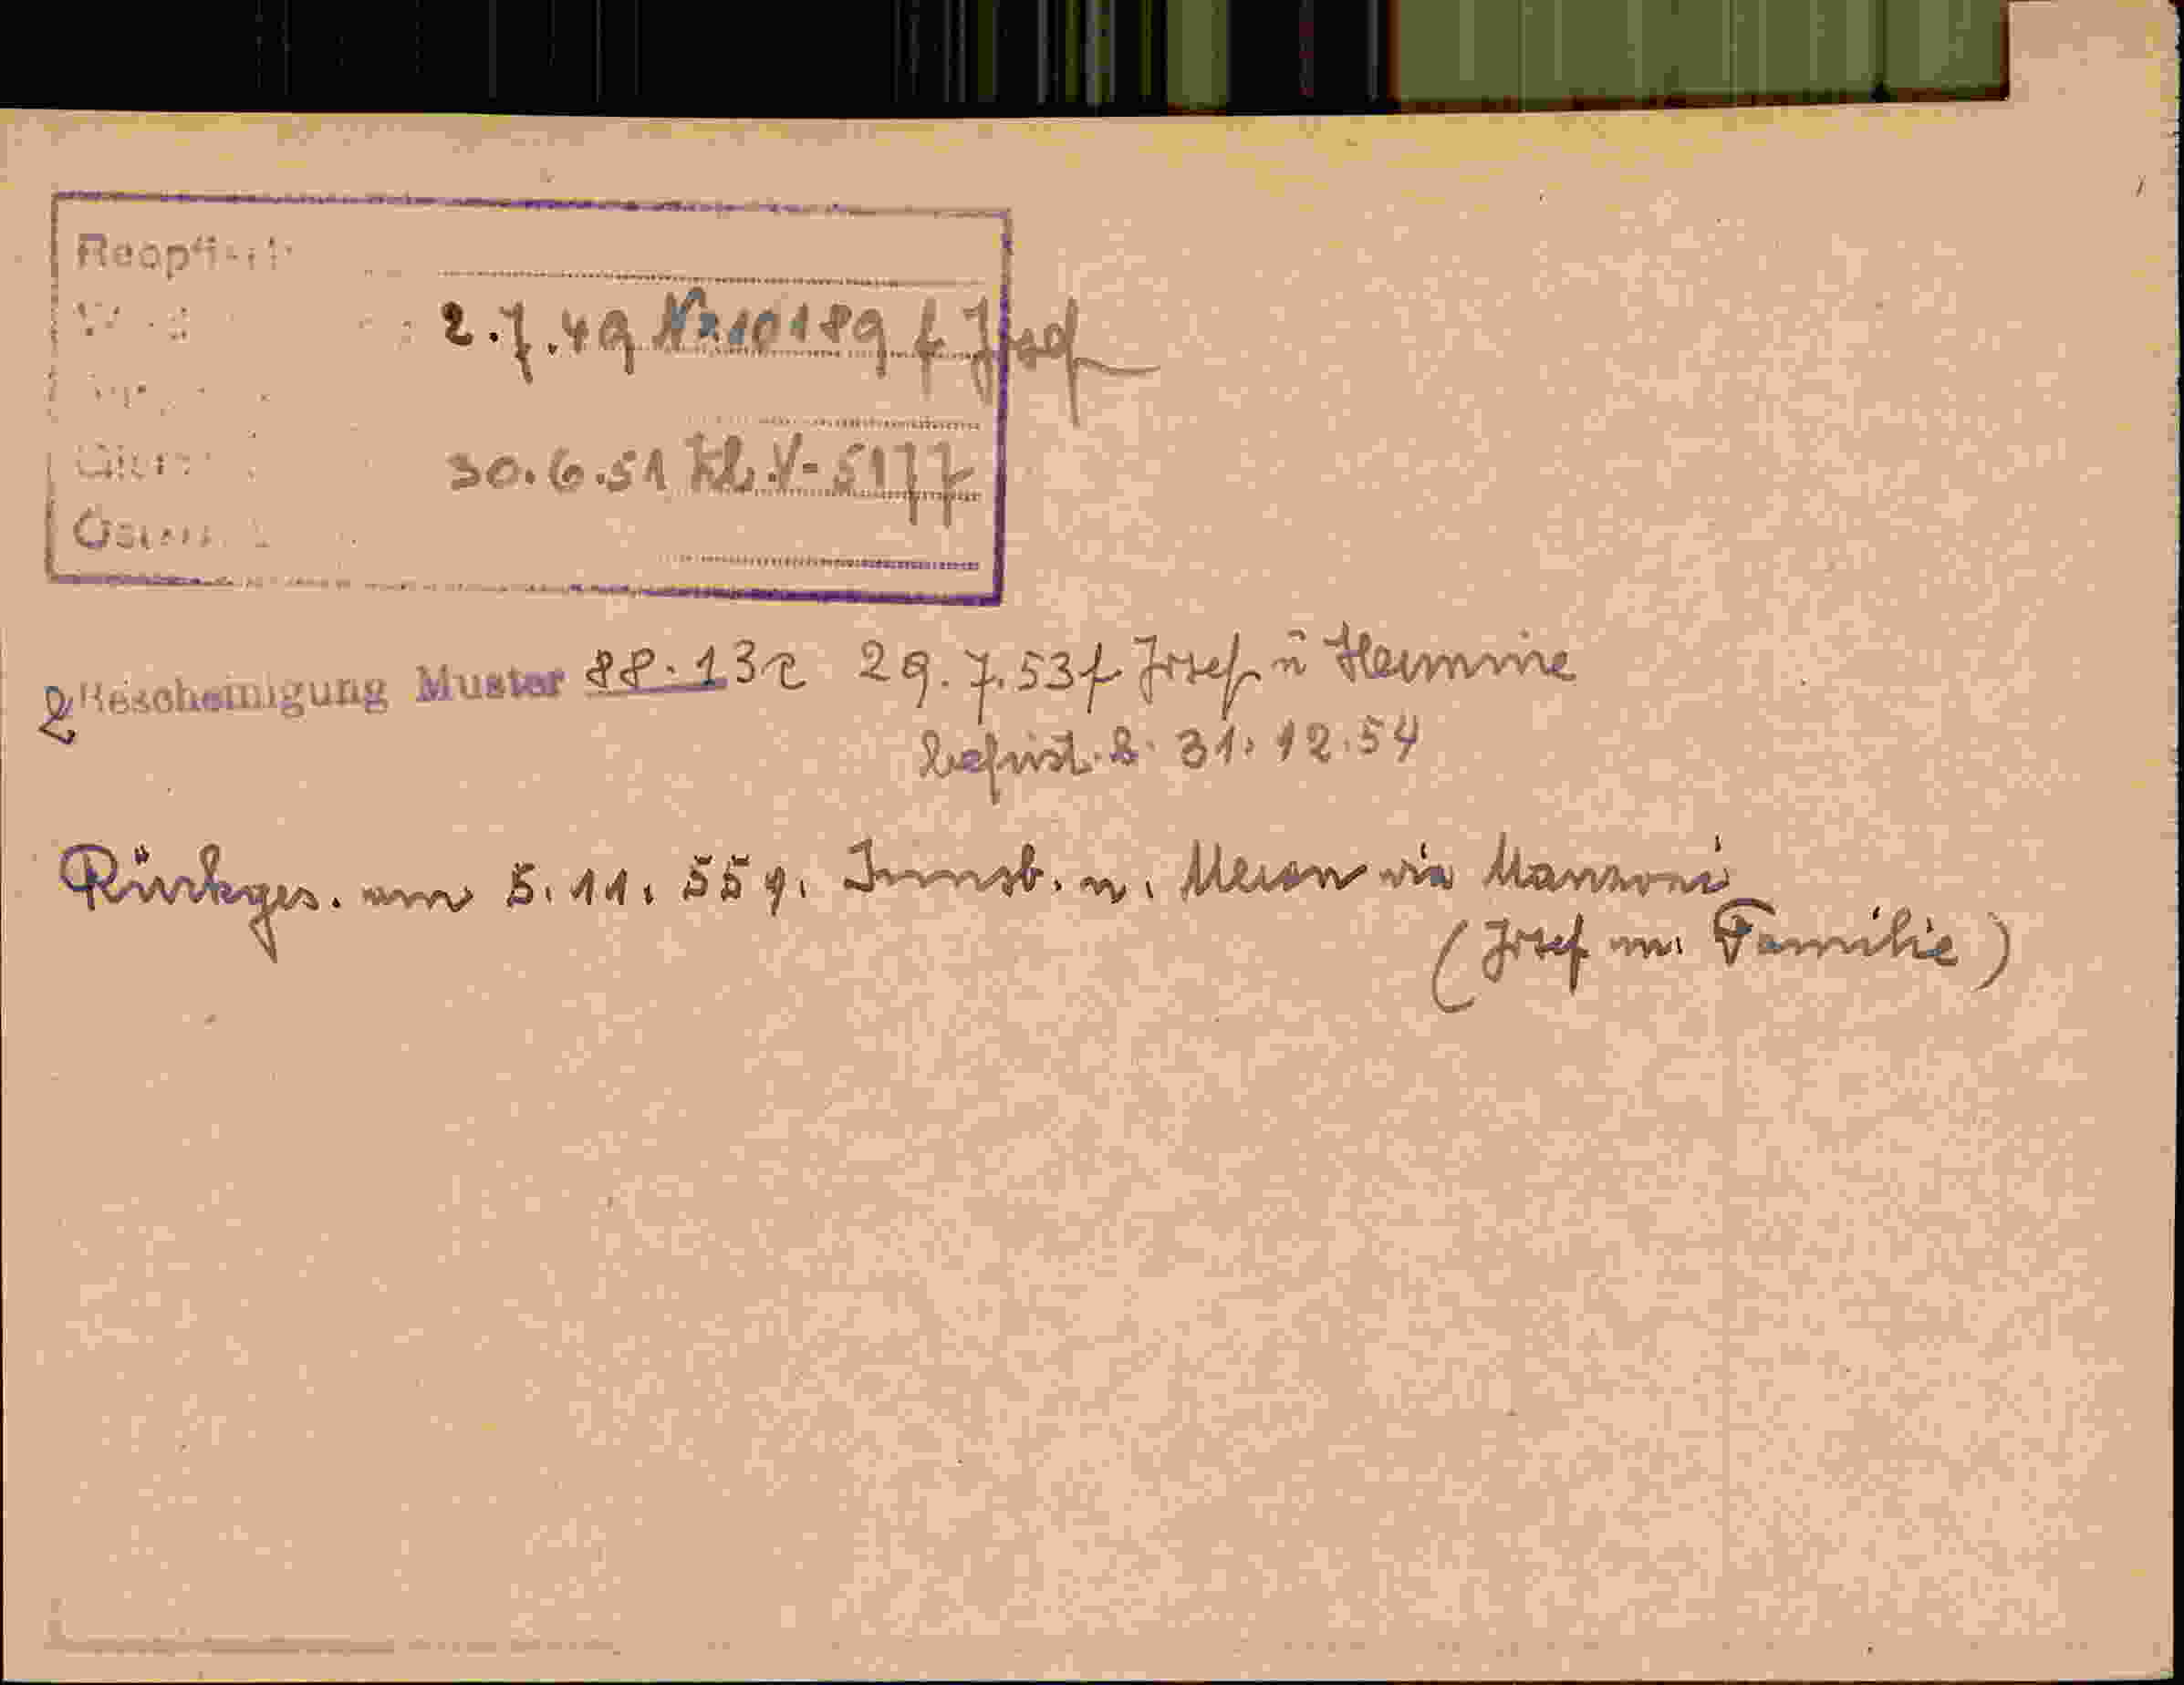 2.7.49 Nr.10189 f Josef
30.6.51 Kl.V-5177
2 Bescheinigung Muster 88.13c 29.7.53 f Josef u Hermine
befrist. b. 31.12.54
Rückges. am 5.11.55 g. Innsb. n. Meran via Manzoni
(Josef m. Familie)